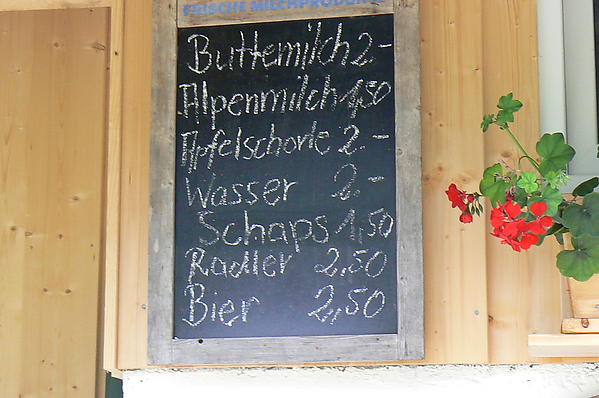 FRISCHE MILCHPRODUKTE
Buttemilch 2.-
Alpenmilch 1,50
Apfelschorle 2.-
Wasser 2.-
Schaps 1,50
Radler 2,50
Bier 2,50